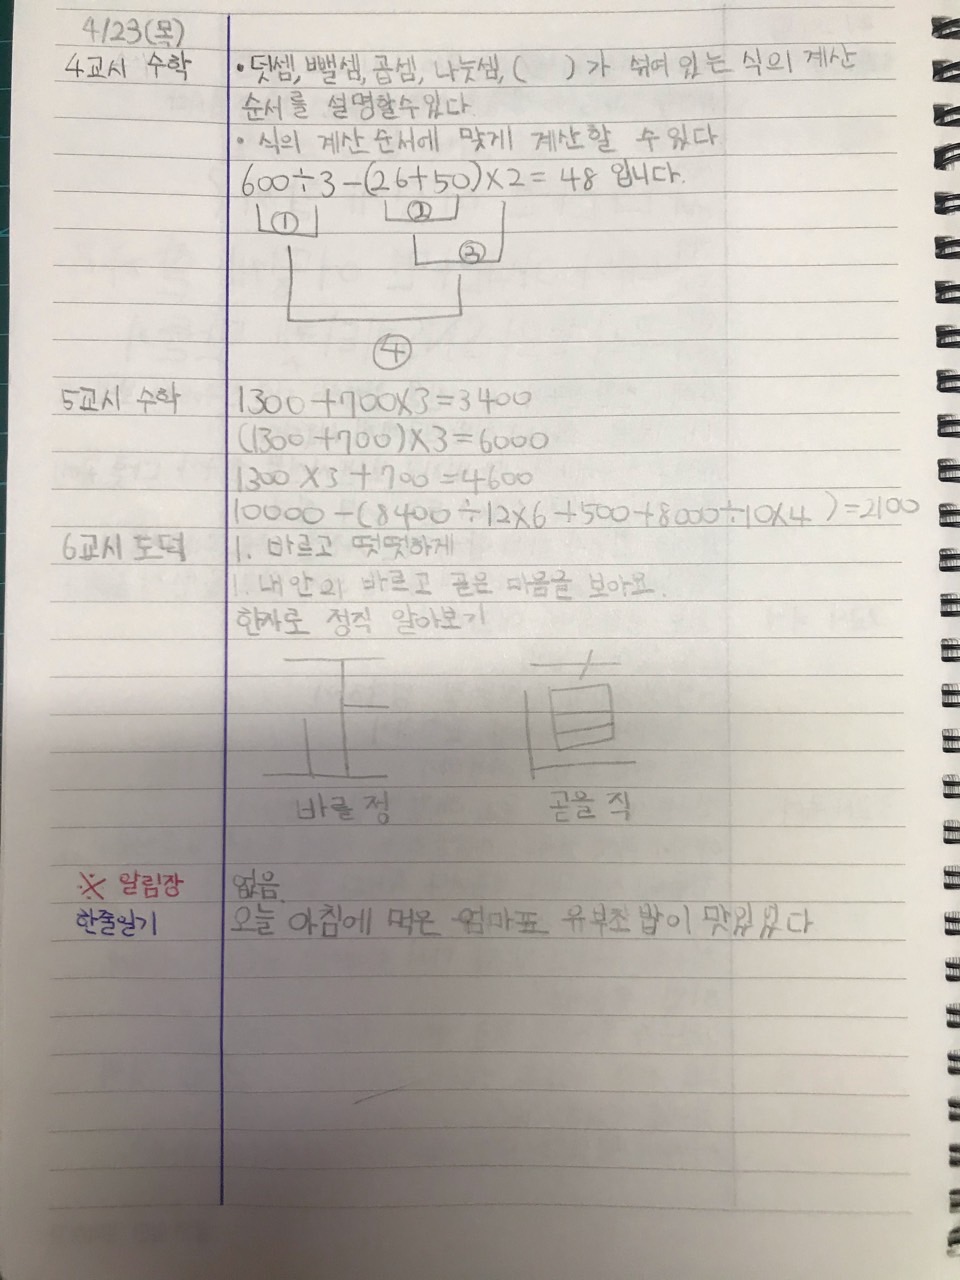 4/23(목)
4교시 수학 • 덧셈, 뺄셈, 곱셈, 나눗셈, ( )가 섞여 있는 식의 계산
순서를 설명할수있다
• 식의 계산 순서에 맞게 계산할 수 있다
600÷3-(26+50)×2=48 입니다.
① ②
③
④
5교시 수학 1300+700×3=3400
(1300+700)×3=6000
1300×3+700=4600
10000-(8400÷12×6+500+8000÷10×4)=2100
6교시 도덕 1. 바르고 떳떳하게
1. 내 안의 바르고 곧은 마음을 보아요.
한자로 정직 알아보기
正 直
바를 정 곧을 직
※ 알림장 없음.
한줄일기 오늘 아침에 먹은 엄마표 유부초밥이 맛있었다